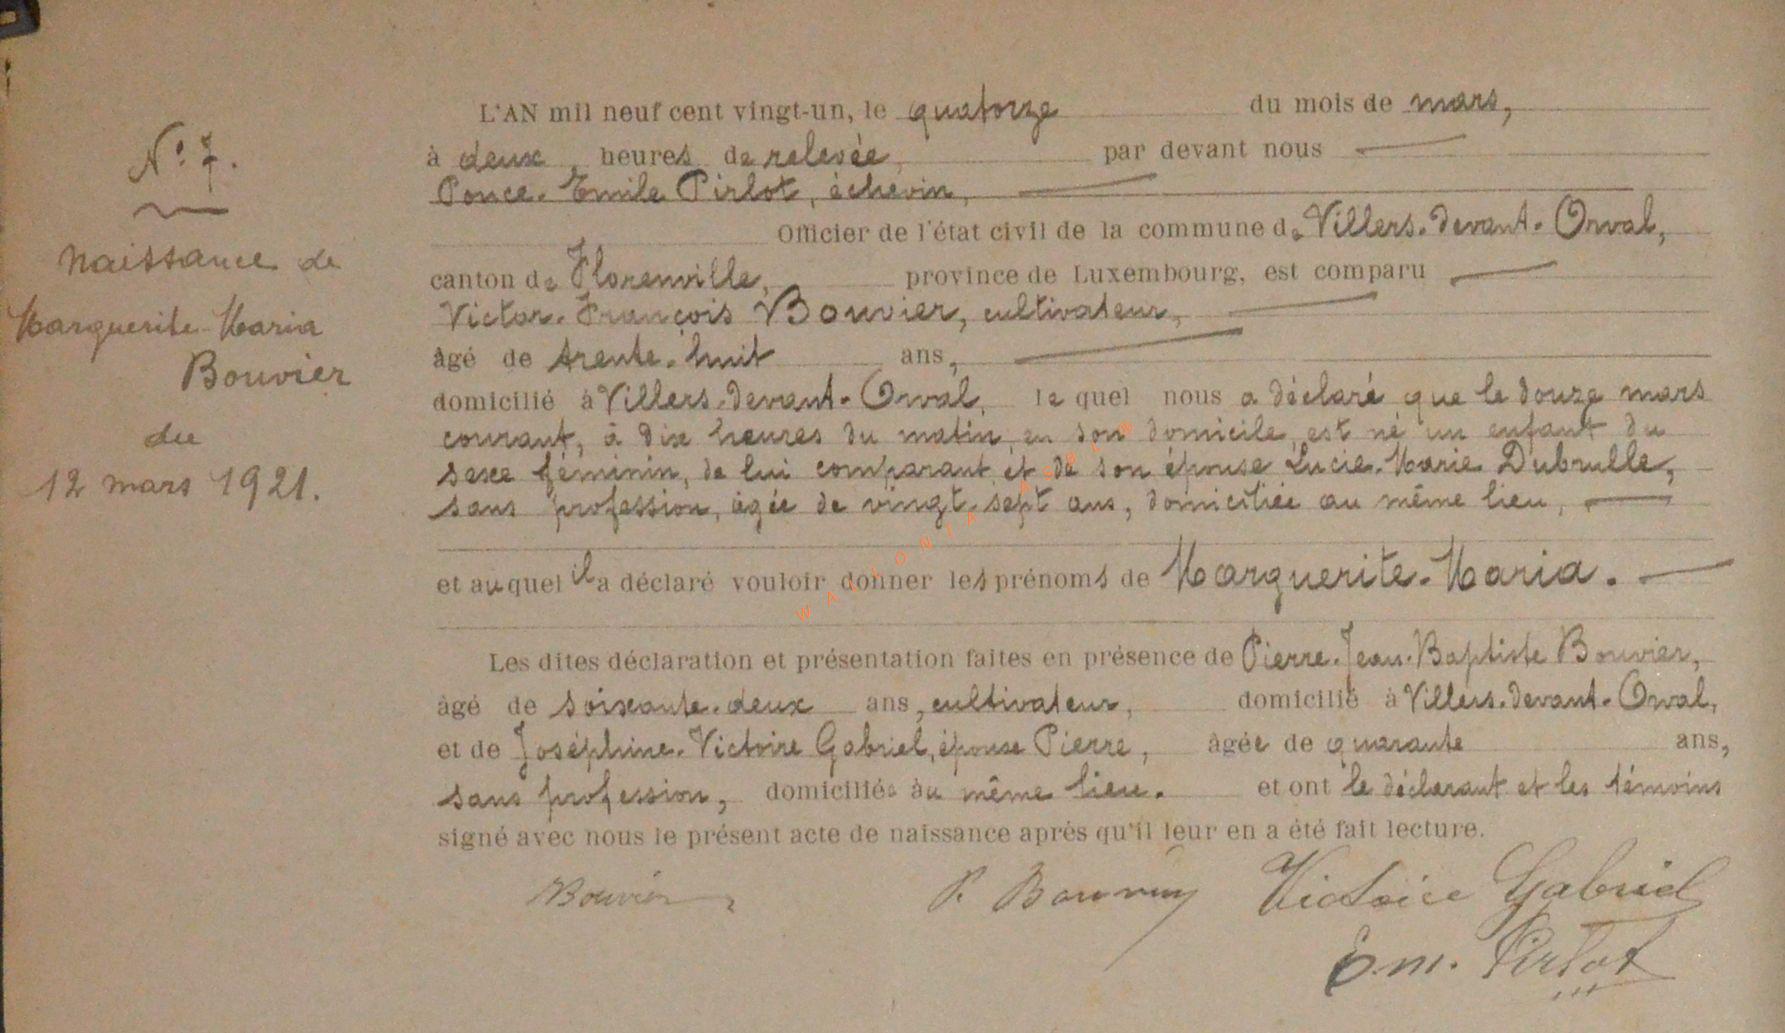 N° 7.
Naissance de
Marguerite-Maria
Bouvier
du
12 mars 1921.
L'AN mil neuf cent vingt-un, le quatorze du mois de mars,
à deux heures de relevée, par devant nous
Ponce-Emile Pirlot, échevin,
Officier de l'état civil de la commune de Villers-devant-Orval,
canton de Florenville, province de Luxembourg, est comparu
Victor-François Bouvier, cultivateur,
âgé de trente-huit ans,
domicilié à Villers-devant-Orval, lequel nous a déclaré que le douze mars
courant, à dix heures du matin en son domicile, est né un enfant du
sexe féminin, de lui comparant et de son épouse Lucie-Marie Dubrulle,
sans profession, âgée de vingt-sept ans, domiciliée au même lieu,
et auquel il a déclaré vouloir donner les prénoms de Marguerite-Maria.
Les dites déclaration et présentation faites en présence de Pierre-Jean-Baptiste Bouvier,
âgé de soixante-deux ans, cultivateur, domicilié à Villers-devant-Orval,
et de Joséphine-Victoire Gabriel, épouse Pierre, âgée de quarante ans,
sans profession, domiciliée au même lieu. et ont le déclarant et les témoins
signé avec nous le présent acte de naissance après qu'il leur en a été fait lecture.
Bouvier P. Bouvier Victoire Gabriel
Em. Pirlot
WALLONIA